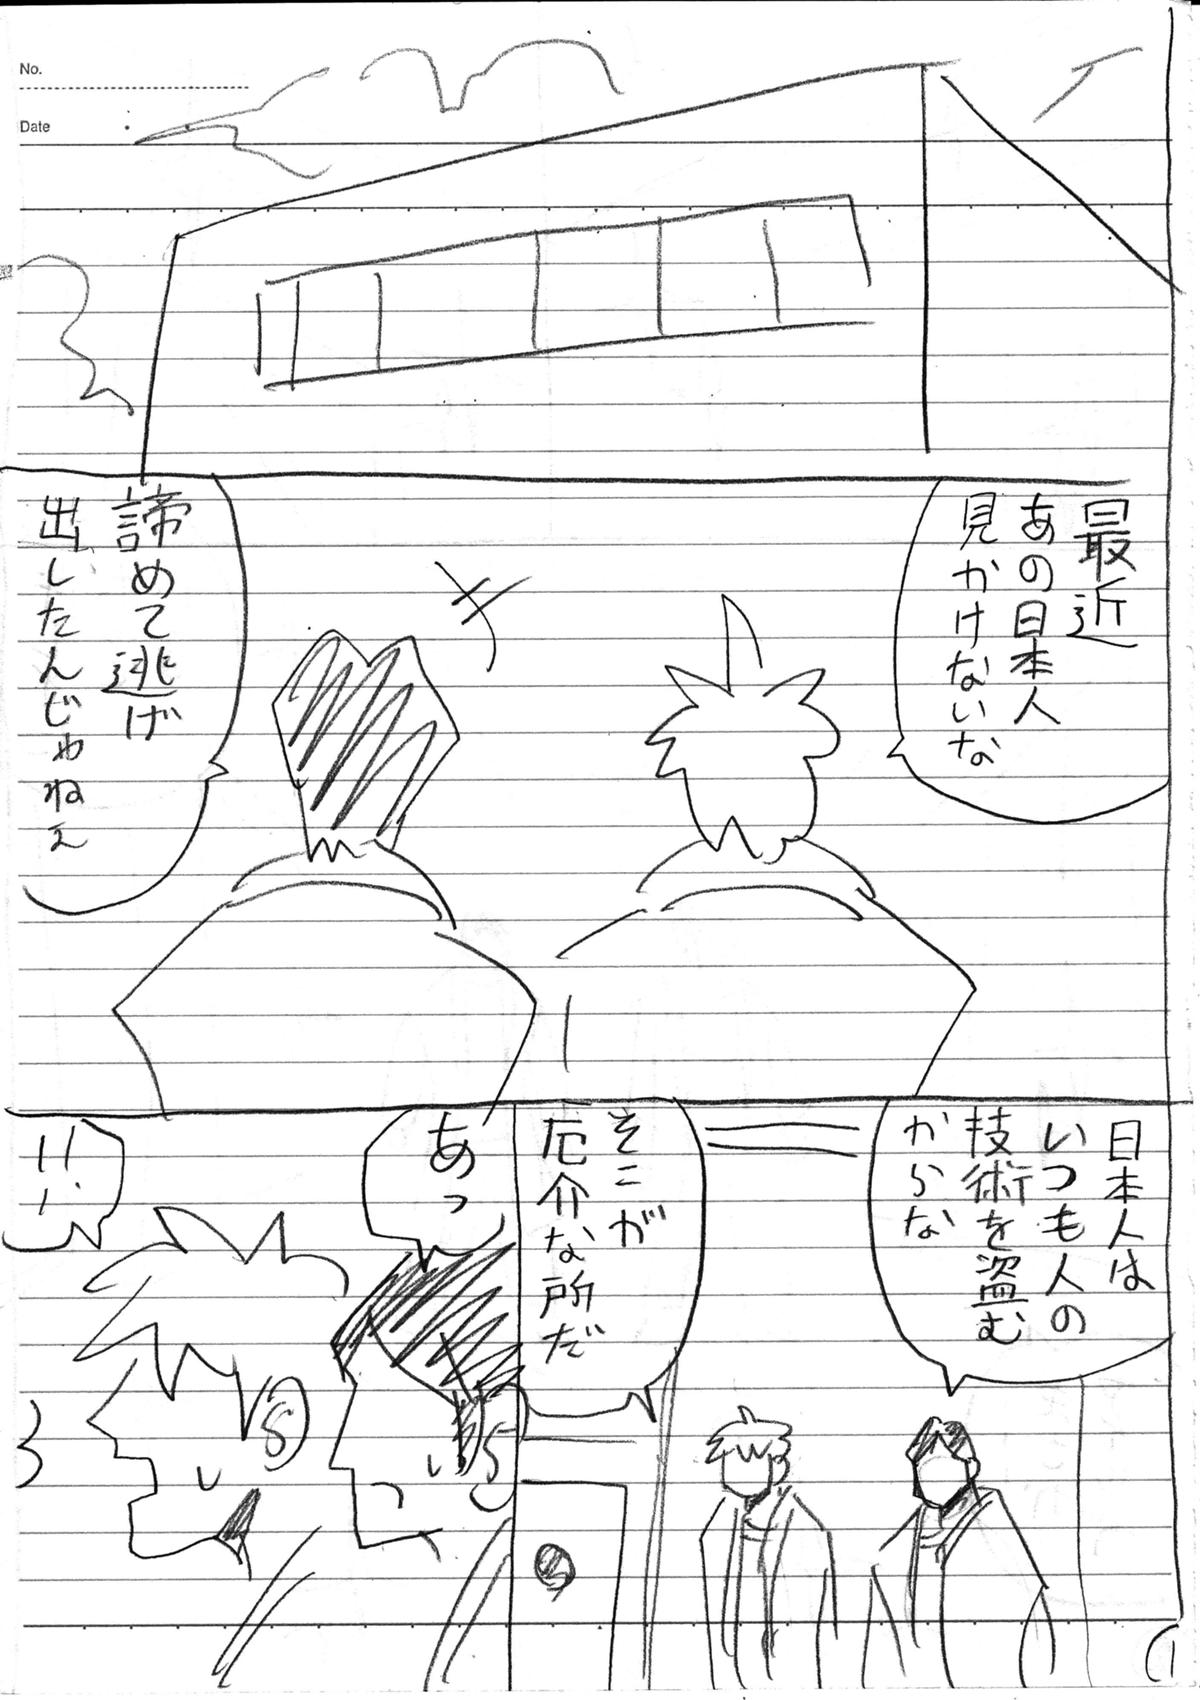 No.
Date
最近
あの日本人
見かけないな
諦めて逃げ
出したんじゃねェ
日本人は
いつも人の
技術を盗む
からな
そこが
厄介な所だ
あっ
!!